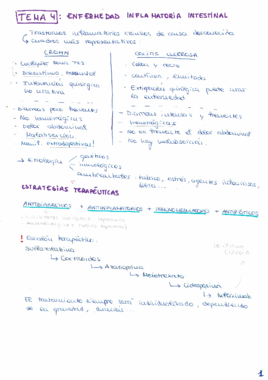 TEMA 4: ENFERMEDAD INFLAMATORIA INTESTINAL
Trastornos inflamatorios crónicos de causa desconocida
↳ cuadros más representativos
CROHN
COLITIS ULCEROSA
- Cualquier tramo TGI
- Colon y recto
- Discontinua,
- Continua,
- quirúrgica
- Extirpación quirúrgica puede curar
no curativa
la enfermedad
- Diarreas
- Diarreas y frecuentes
- No hemorrágicas
hemorrágicas
- Dolor abdominal
- No es frecuente el dolor abdominal
- Malabsorción
- No hay malabsorción.
Manif. extraintestinal
→ Etiología
genéticos
inmunológicos
ambientales: tabaco, estrés, agentes infecciosos,
dieta...
ESTRATEGIAS TERAPÉUTICAS
ANTIDIARREICOS + ANTIINFLAMATORIOS + INMUNOMODULADORES + ANTIBIÓTICOS
! Escalón terapéutico:
Sulfasalazina
↳ Corticoides
↳ Azatioprina
↳ Metotrexato
↳ Ciclosporina
↳ Infliximab
El tratamiento siempre será individualizado, dependiendo
de su gravedad,
1